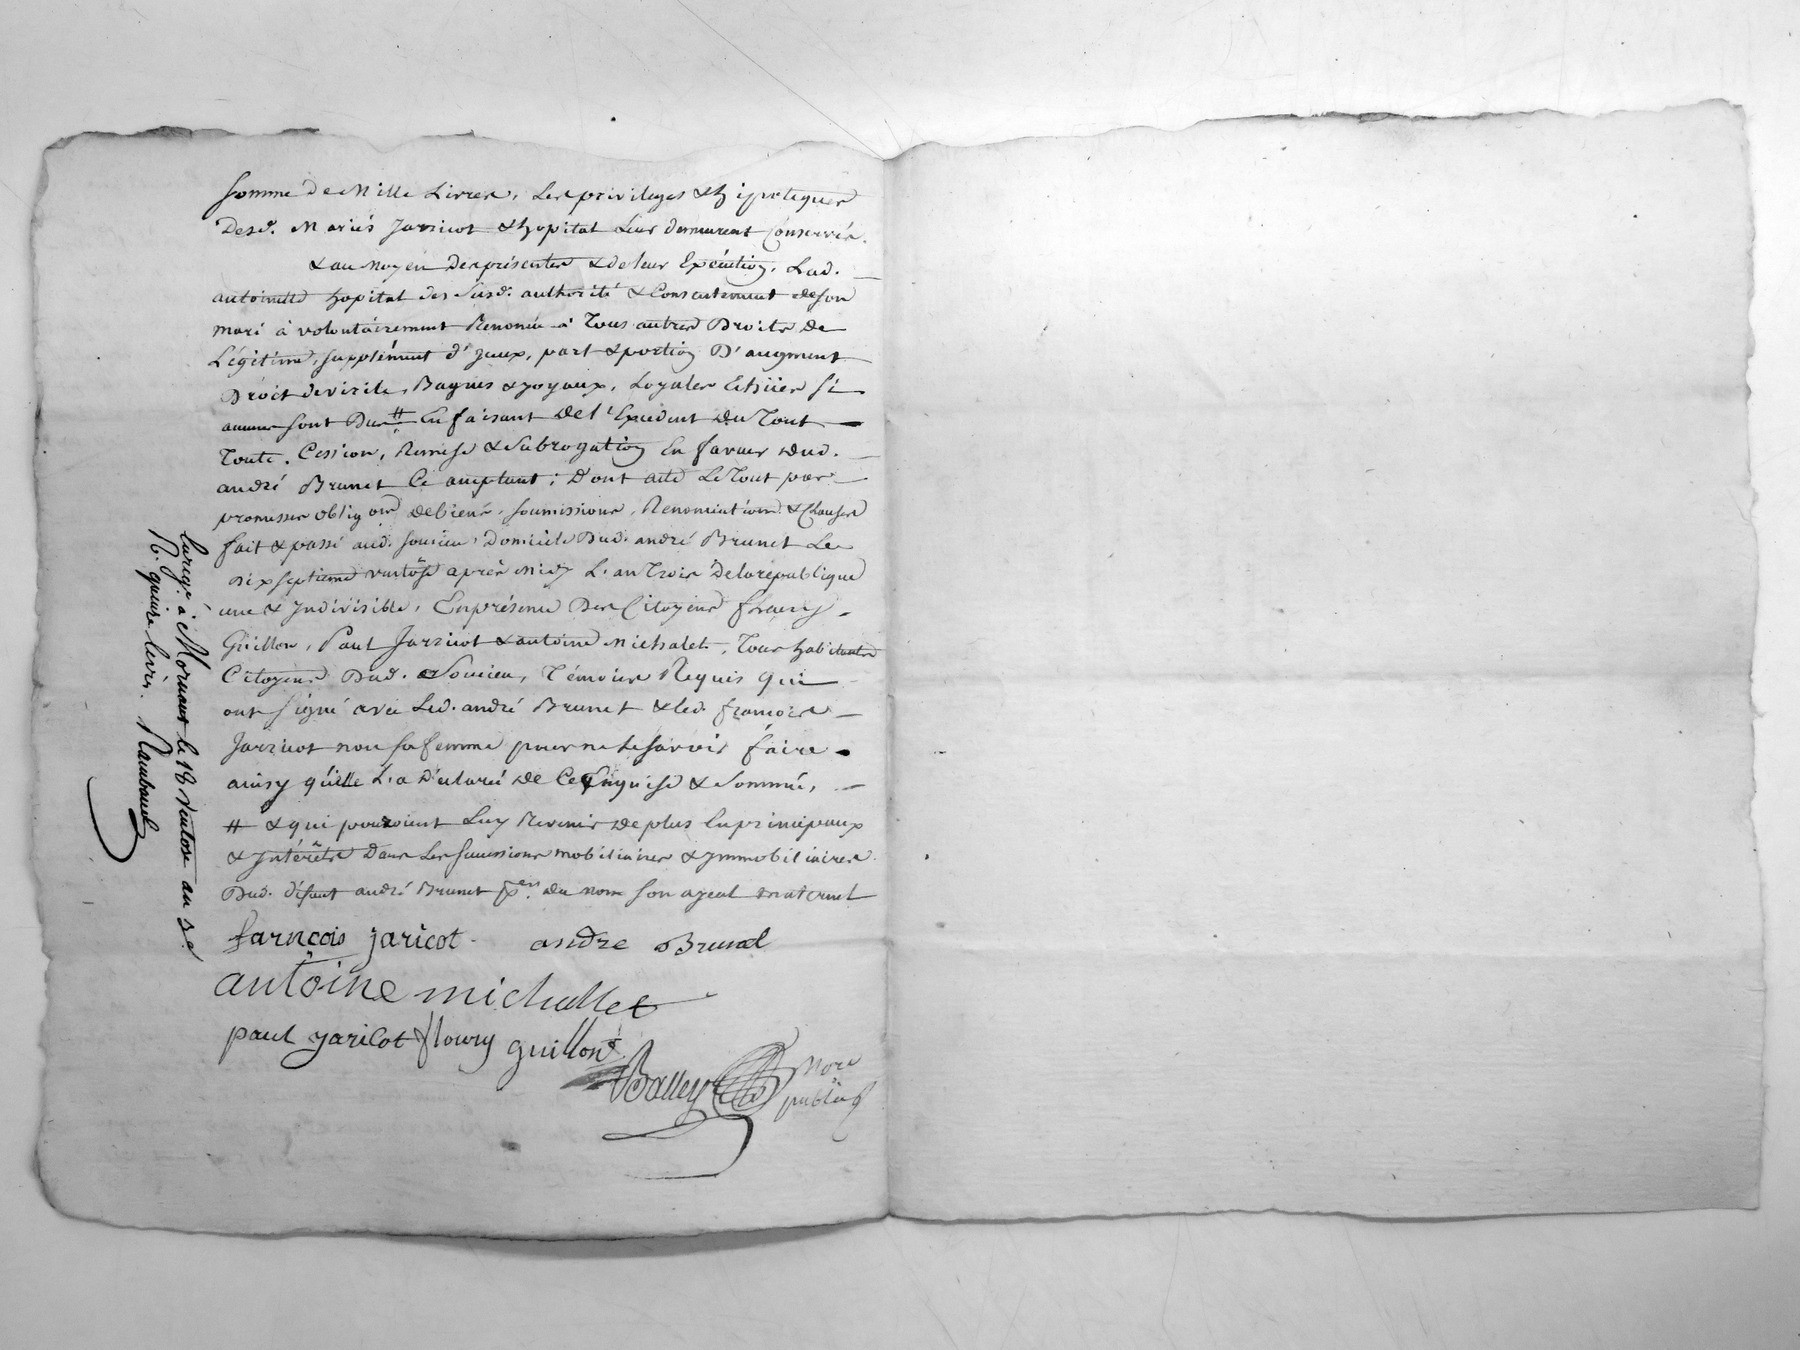 somme de Mille Livres, Les privileges & hipoteques
Desd. Mariés Jarricot & hopital Leur demeurent Conservés.
& au moyen des présentes & de leur Exécution, Lad.
antoinette hopital des Susd. authorité & Consentement de son
mari à volontairement Renoncée à Tous autres Droits de
Légitime, supplément d'yceux, part & portion D'augment
Droit de virile, Bagues & joyaux, Loyales Echües si
aucuns sont Dus # En faisant de l'Excedent du Tout
Toute Cession, Remise & Subrogation En faveur dud.
andré Brunet Ce acceptant; Dont acte Le Tout par
promesses obligons de biens, soumissions, Renonciations & Clauses
fait & passé aud. soucieu, Domicile Dud. andré Brunet Le
dix septieme ventôse après Midy L'an Trois De la république
une & Indivisible, En présence Des Citoyens fleury
Guillon, Paul Jarricot & antoine Michalet, Tous habitants
Citoyens Dud. Soucieu, Témoins Requis qui
ont signé avec Led. andré Brunet & led. françois
Jarricot non sa femme pour ne le savoir faire
ainsy quelle L'a Déclaré de Ce Enquise & Sommée,
# & qui pouroient Luy Revenir de plus En principaux
& Intérêts Dans Les Successions mobiliaires & immobiliaires
Dud. défunt andré Brunet per. du nom son ayeul maternel
farnçois jaricot andre Brunel
antoine michallet
paul jaricot flowry guillont
Balley Nore
public
Enregé. à Mornant le 18 Ventose an 3e.
R. quinze livrs. Rambaud